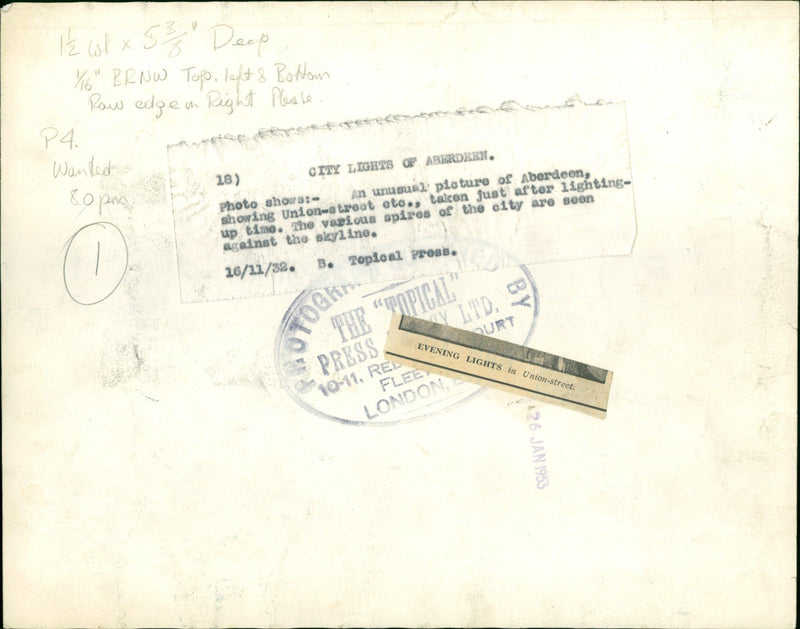 1½ wl x 5⅜" Deep
1/16" BRNW Top. left & Bottom
Raw edge on Right Please.
P4.
Wanted
8.0 pm
1
18) CITY LIGHTS OF ABERDEEN.
Photo shows:- An unusual picture of Aberdeen,
showing Union-street etc., taken just after lighting-
up time. The various spires of the city are seen
against the skyline.
16/11/32. B. Topical Press.
BY
THE "TOPICAL"
PRESS LTD.
10-11, RED COURT
FLEET
LONDON,
EVENING LIGHTS in Union-street.
26 JAN 1953